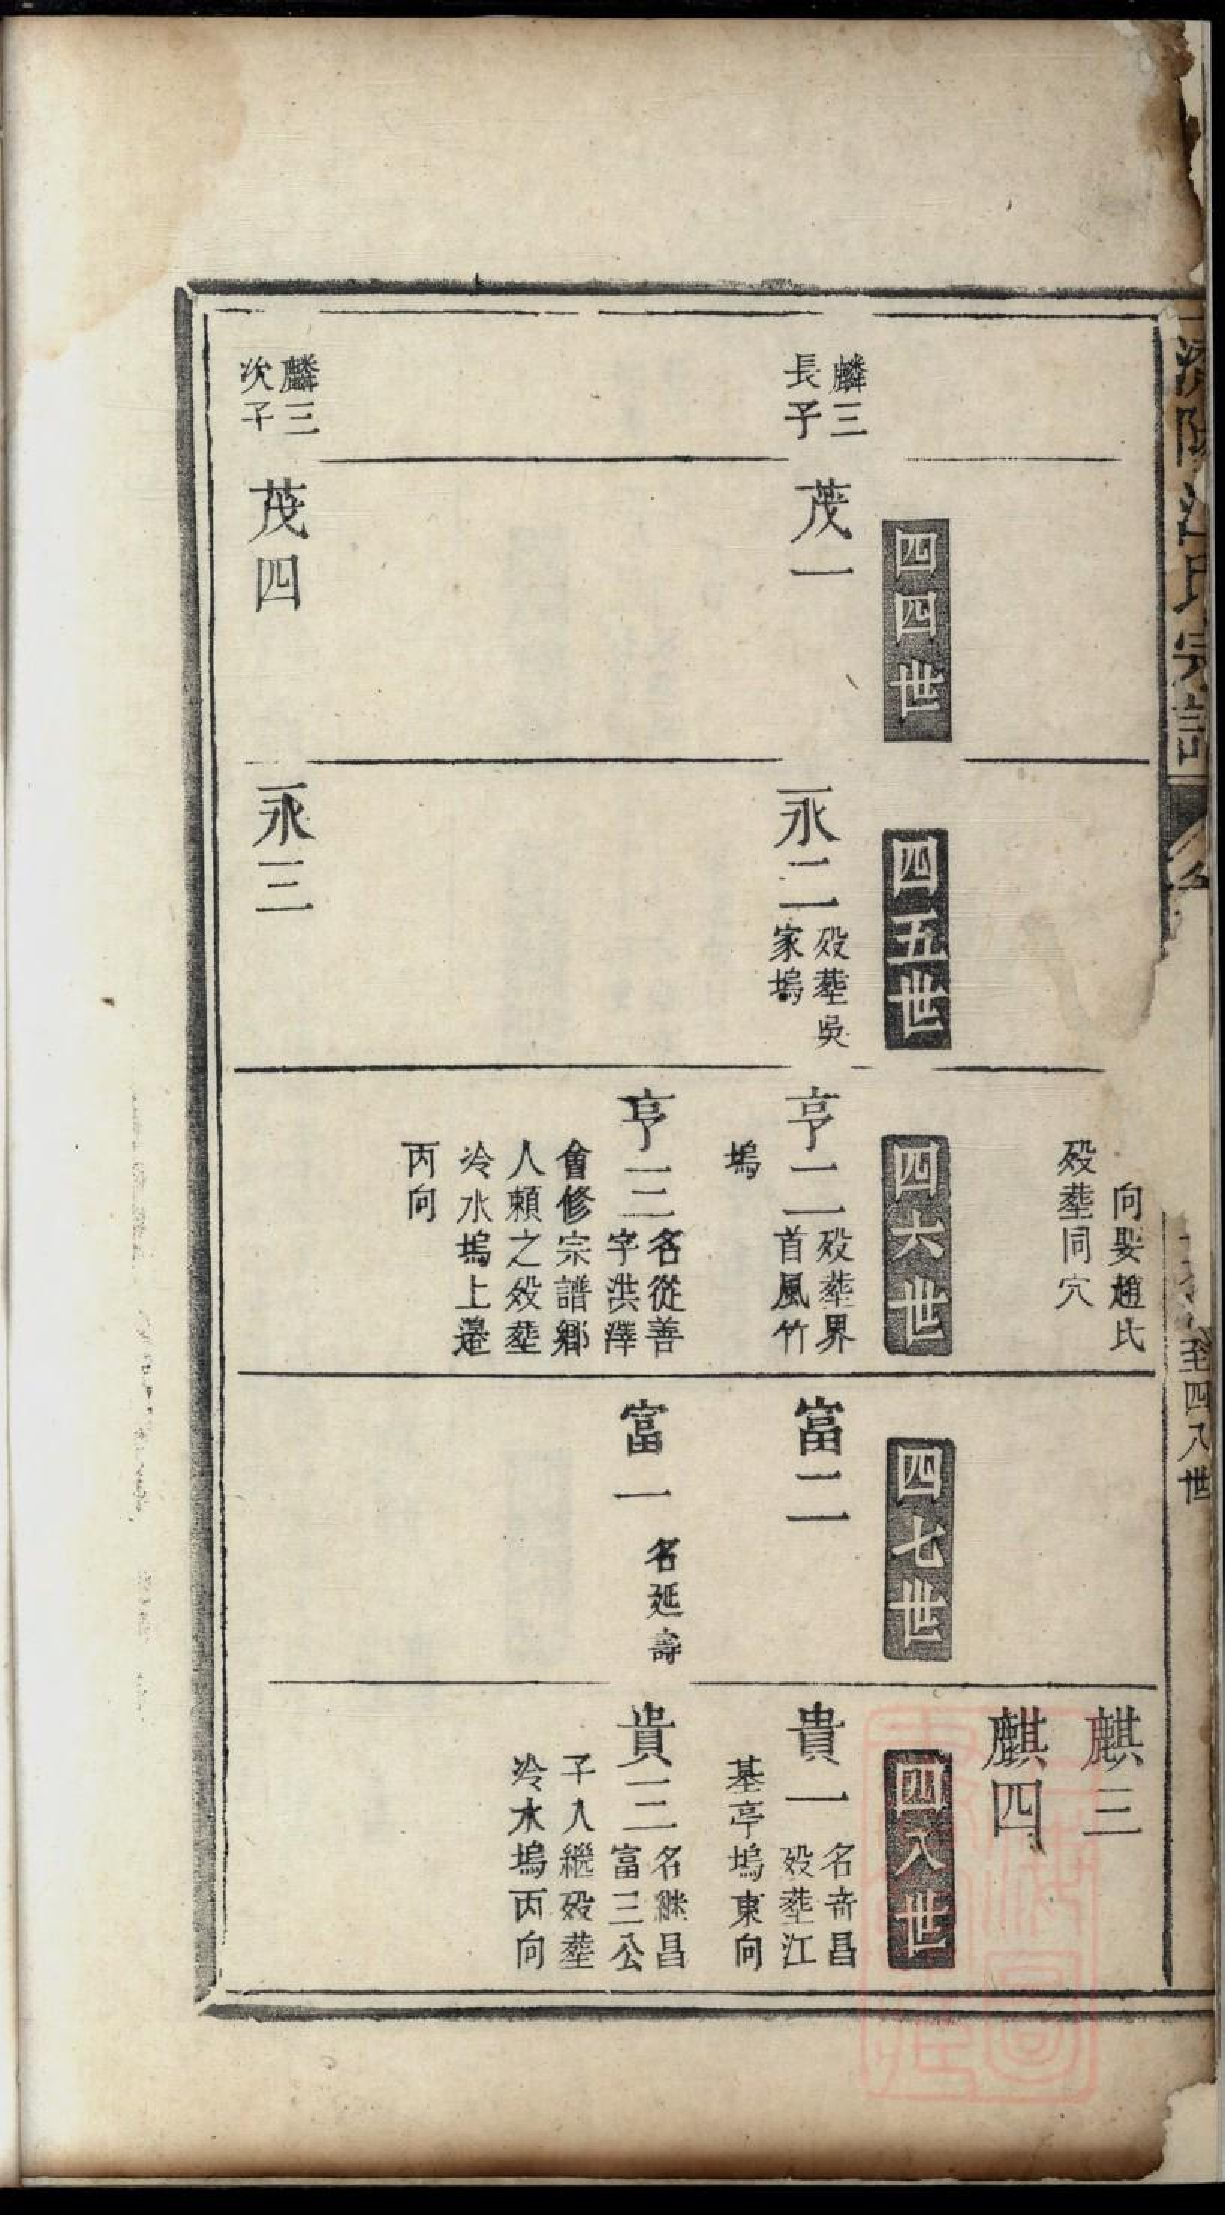 濟陽江氏宗譜
至四八世
向娶趙氏
殁塟同穴
麒三
麒四
四四世
四五世
四六世
四七世
四八世
麟三
長子
茂一
永二
殁塟吳
家塢
亨二
殁塟界
首風竹
塢
富二
貴一
名奇昌
殁塟江
基亭塢東向
亨三
名從善
字洪澤
會修宗譜鄉
人頼之殁塟
冷水塢上邊
丙向
富一
名延壽
貴三
名継昌
富三公
子入繼殁塟
冷水塢丙向
麟三
次子
茂四
永三